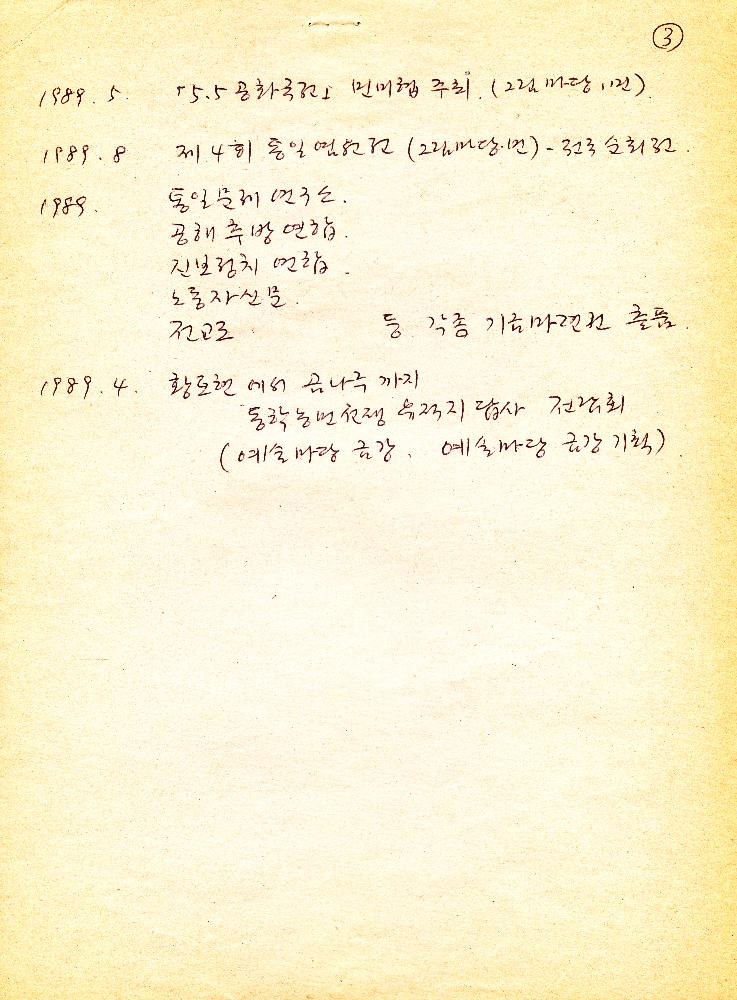 ③
1989. 5. 「5.5 공화국전」 민미협 주최. (그림마당·민)
1989. 8 제4회 통일염원전 (그림마당·민) - 전국순회전.
1989. 통일문제 연구소.
공해 추방 연합.
진보정치 연합.
노동자신문.
전교조 등 각종 기금마련전 출품.
1989. 4. 황토현에서 곰나루까지
동학농민전쟁 유적지 답사 전람회
(예술마당 금강. 예술마당 금강 기획)